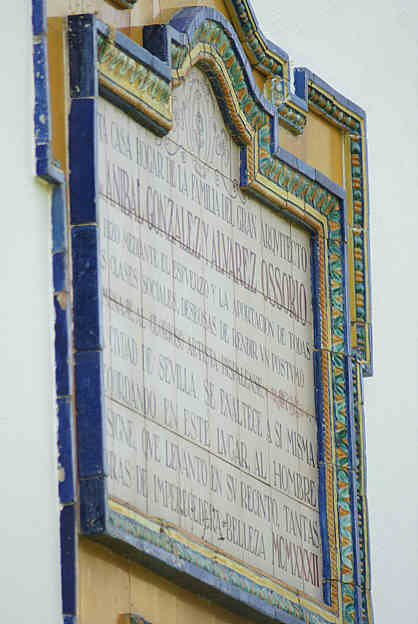 TA CASA HOGAR DE LA FAMILIA DEL GRAN ARQVITECTO
ANIBAL GONZALEZ Y ALVAREZ OSSORIO
MEDIANTE EL ESFVERZO Y LA APORTACION DE TODAS
S CLASES SOCIALES, DESEOSAS DE RENDIR VN POSTVMO
CIVDAD DE SEVILLA, SE ENALTECE A SI MISMA
CORDANDO EN ESTE LVGAR AL HOMBRE
SIGNE QVE LEVANTO EN SV RECINTO TANTAS
RAS DE IMPERECEDERA BELLEZA MCMXXXII